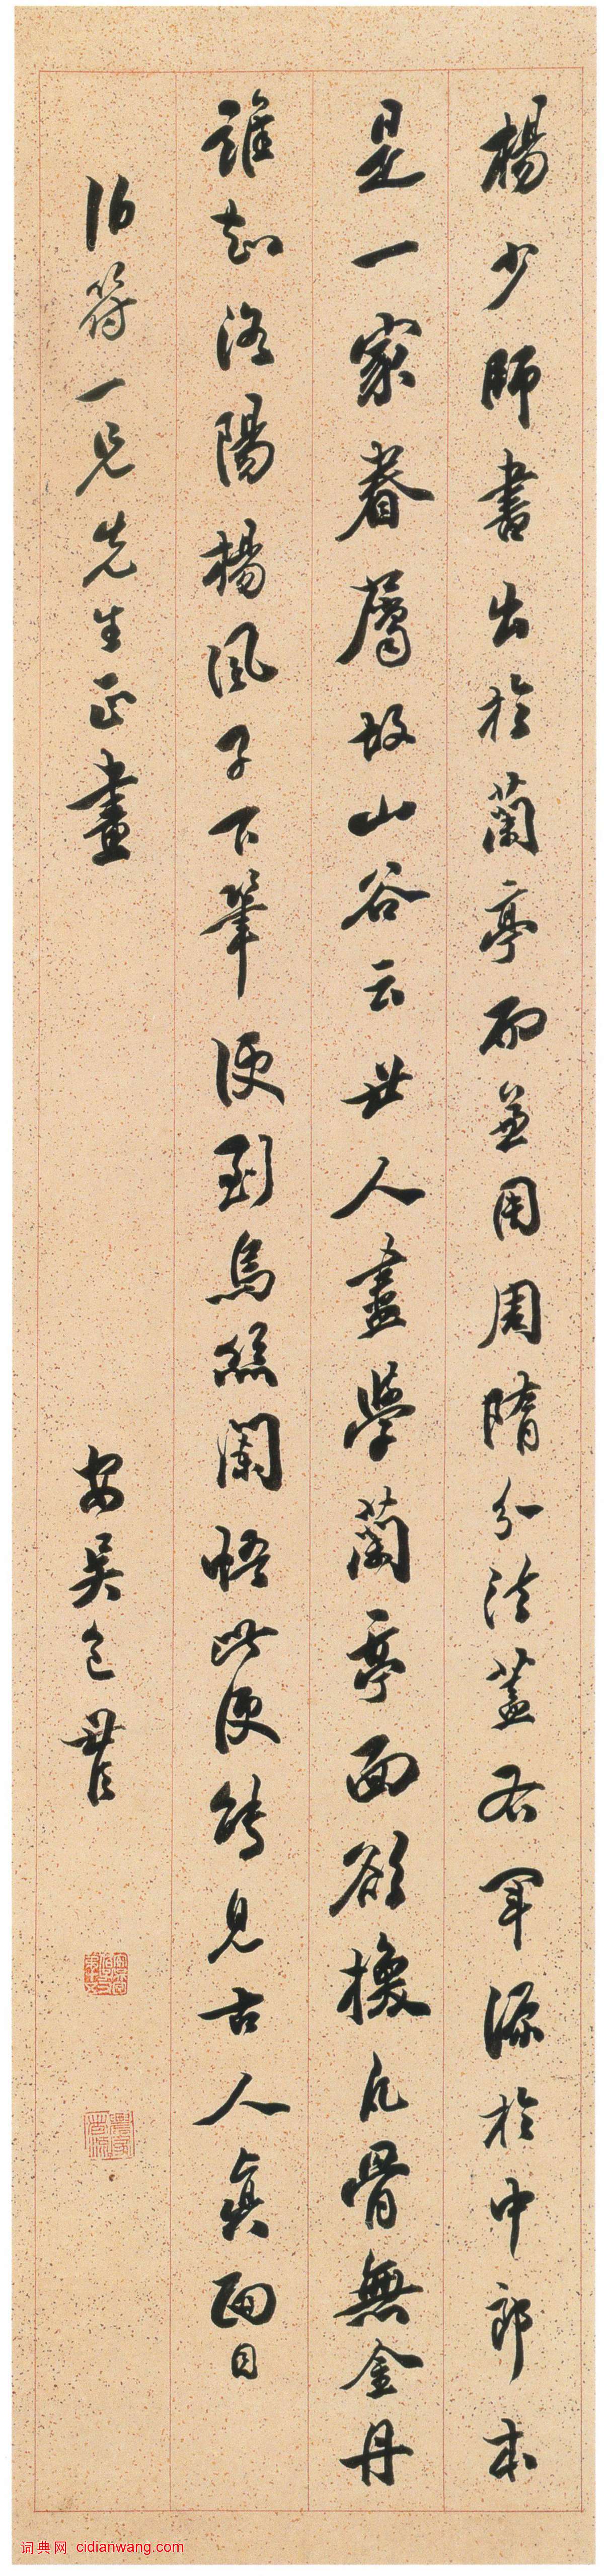 楊少師書出於蘭亭而兼用周隋分法蓋右軍源於中郎本
是一家眷屬故山谷云世人盡學蘭亭面欲換凡骨無金丹
誰知洛陽楊風子下筆便到烏絲闌悟此便能見古人真面目
伯符一兄先生正畫
安吳包世臣
词典网 cidianwang.com